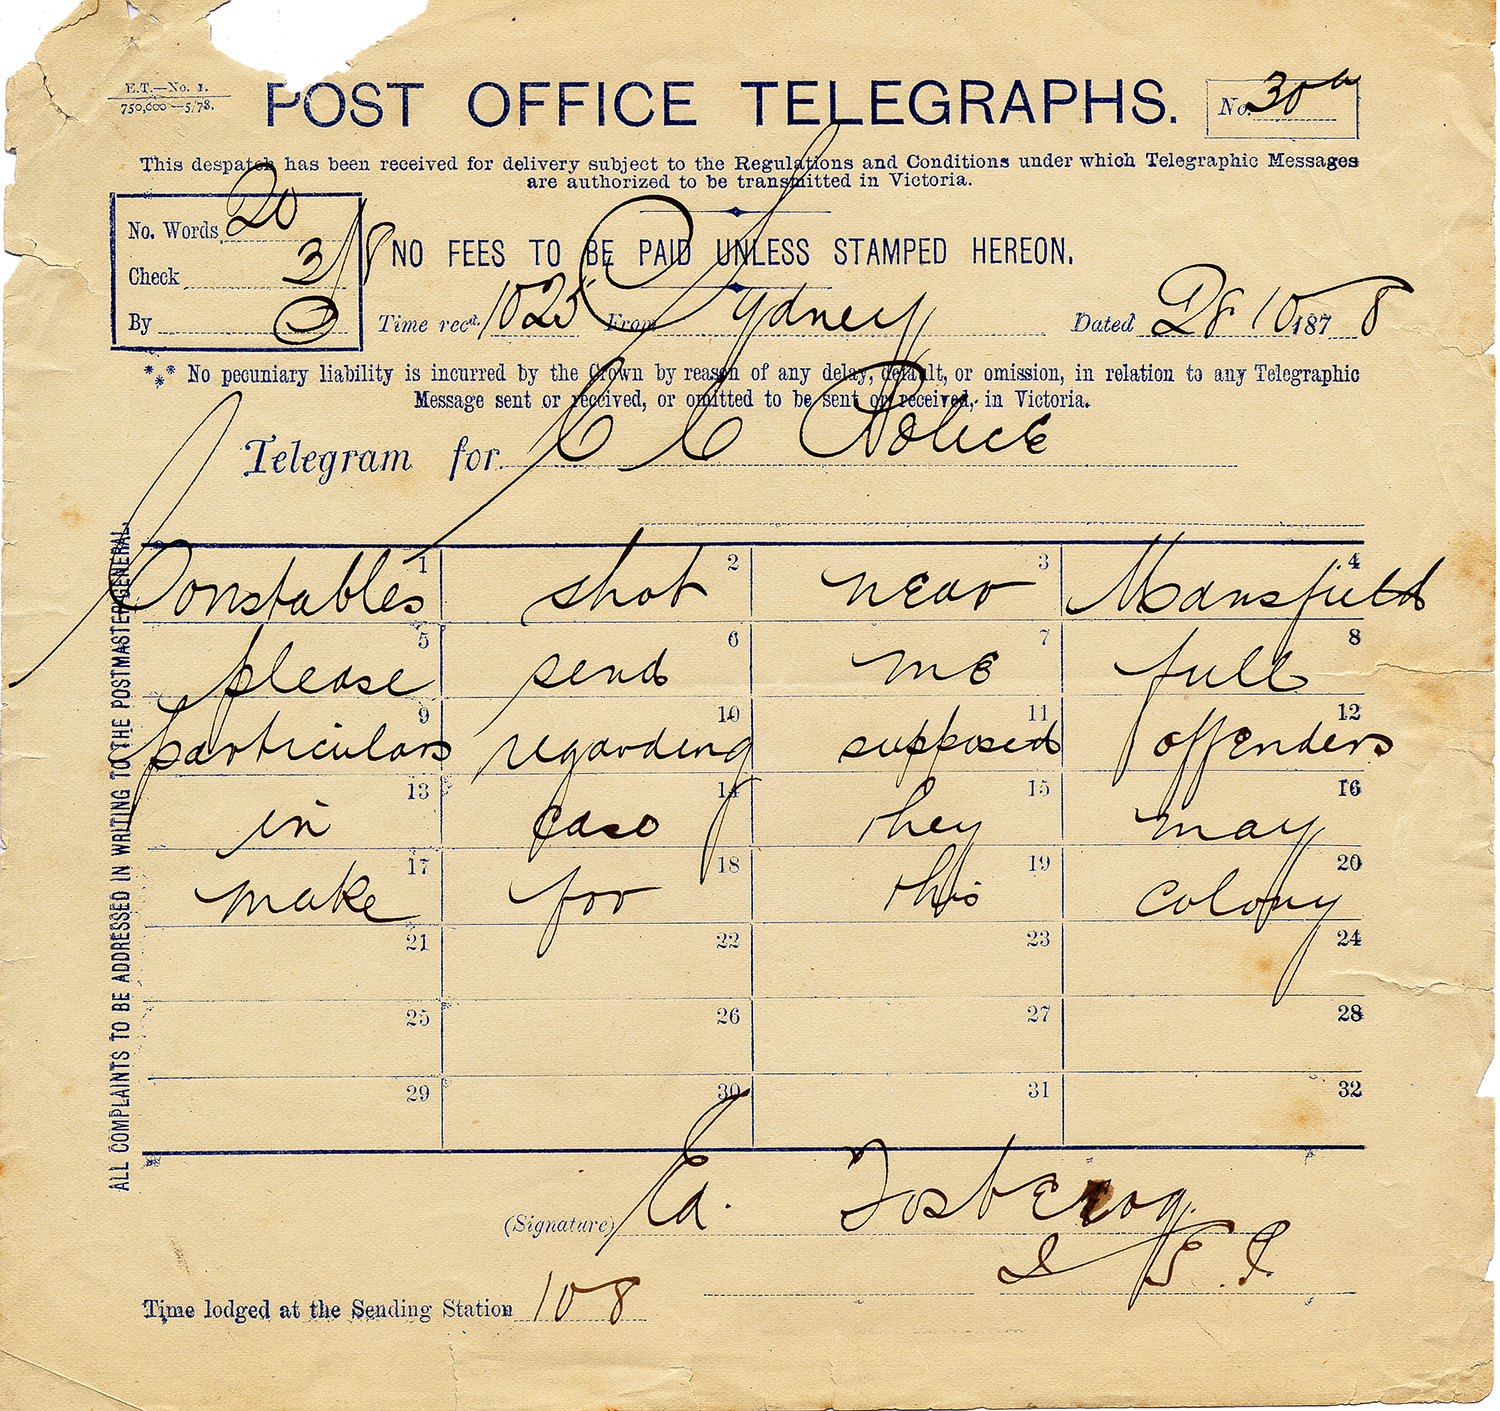 E.T.—No. 1.
750,000—5/78.
POST OFFICE TELEGRAPHS.
No. 30a
This despatch has been received for delivery subject to the Regulations and Conditions under which Telegraphic Messages
are authorized to be transmitted in Victoria.
No. Words 20
Check 3/8
By
NO FEES TO BE PAID UNLESS STAMPED HEREON.
Time recd. 1025 From Sydney Dated 28 10 1878
No pecuniary liability is incurred by the Crown by reason of any delay, default, or omission, in relation to any Telegraphic
Message sent or received, or omitted to be sent or received, in Victoria.
Telegram for C C Police
ALL COMPLAINTS TO BE ADDRESSED IN WRITING TO THE POSTMASTER-GENERAL.
1 2 3 4
Constables shot near Mansfield
5 6 7 8
please send me full
9 10 11 12
particulars regarding supposed offenders
13 14 15 16
in case they may
17 18 19 20
make for this colony
21 22 23 24
25 26 27 28
29 30 31 32
(Signature) Ed. Fosbery
I G P.
Time lodged at the Sending Station 108